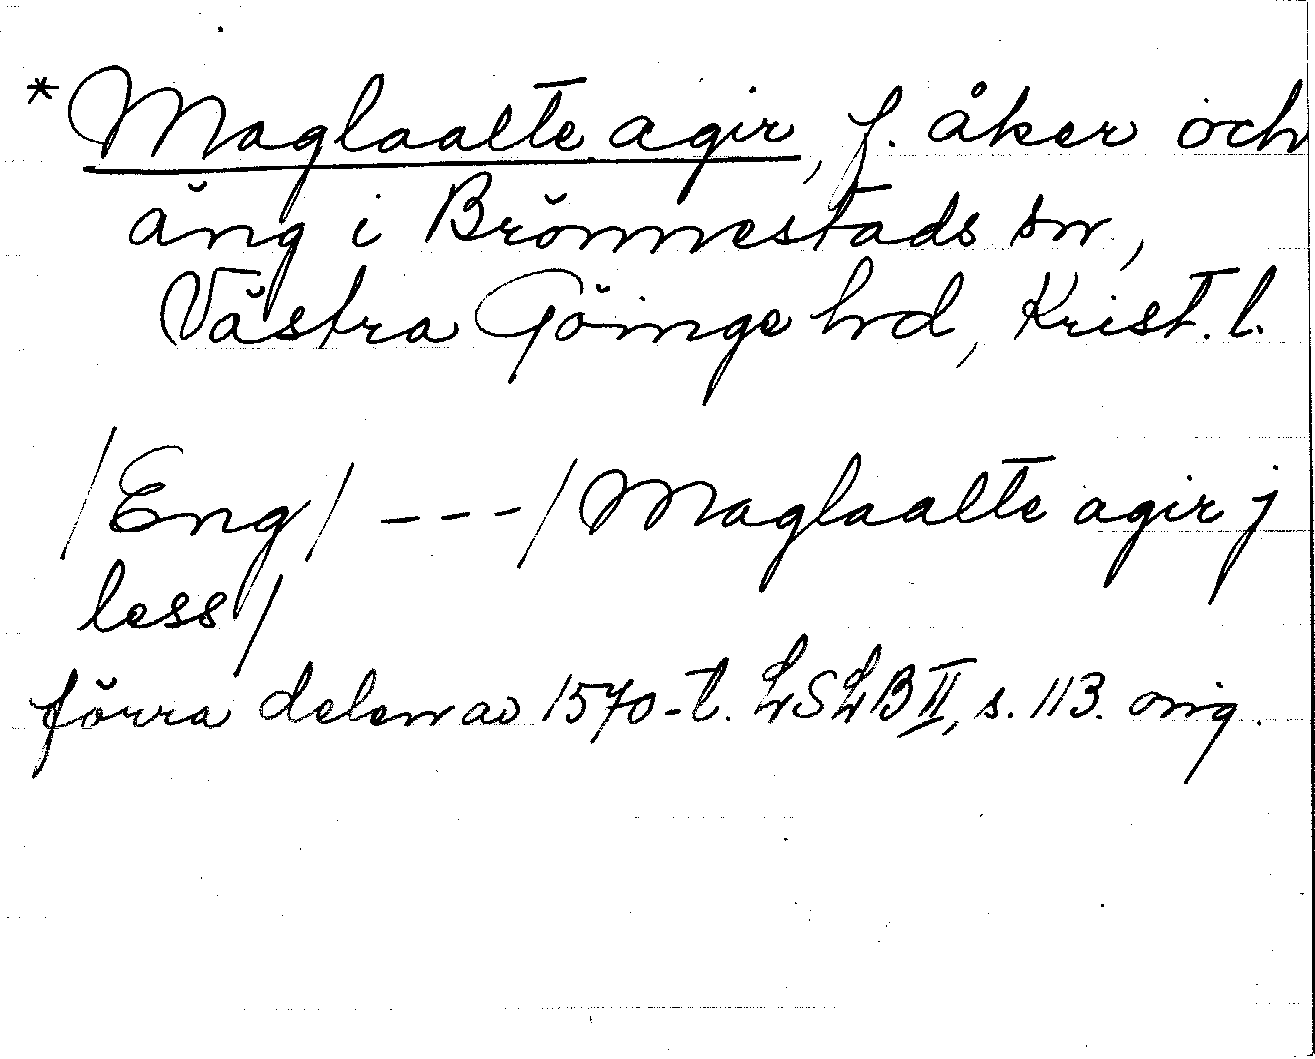 *Maglaalte agir, f. åker och
äng i Brönnestads sn,
Västra Göinge hd, Krist. l.
/Eng/ ---/Maglaalte agir j
less/
förra delen av 1570-t. LSLB II, s. 113. orig.